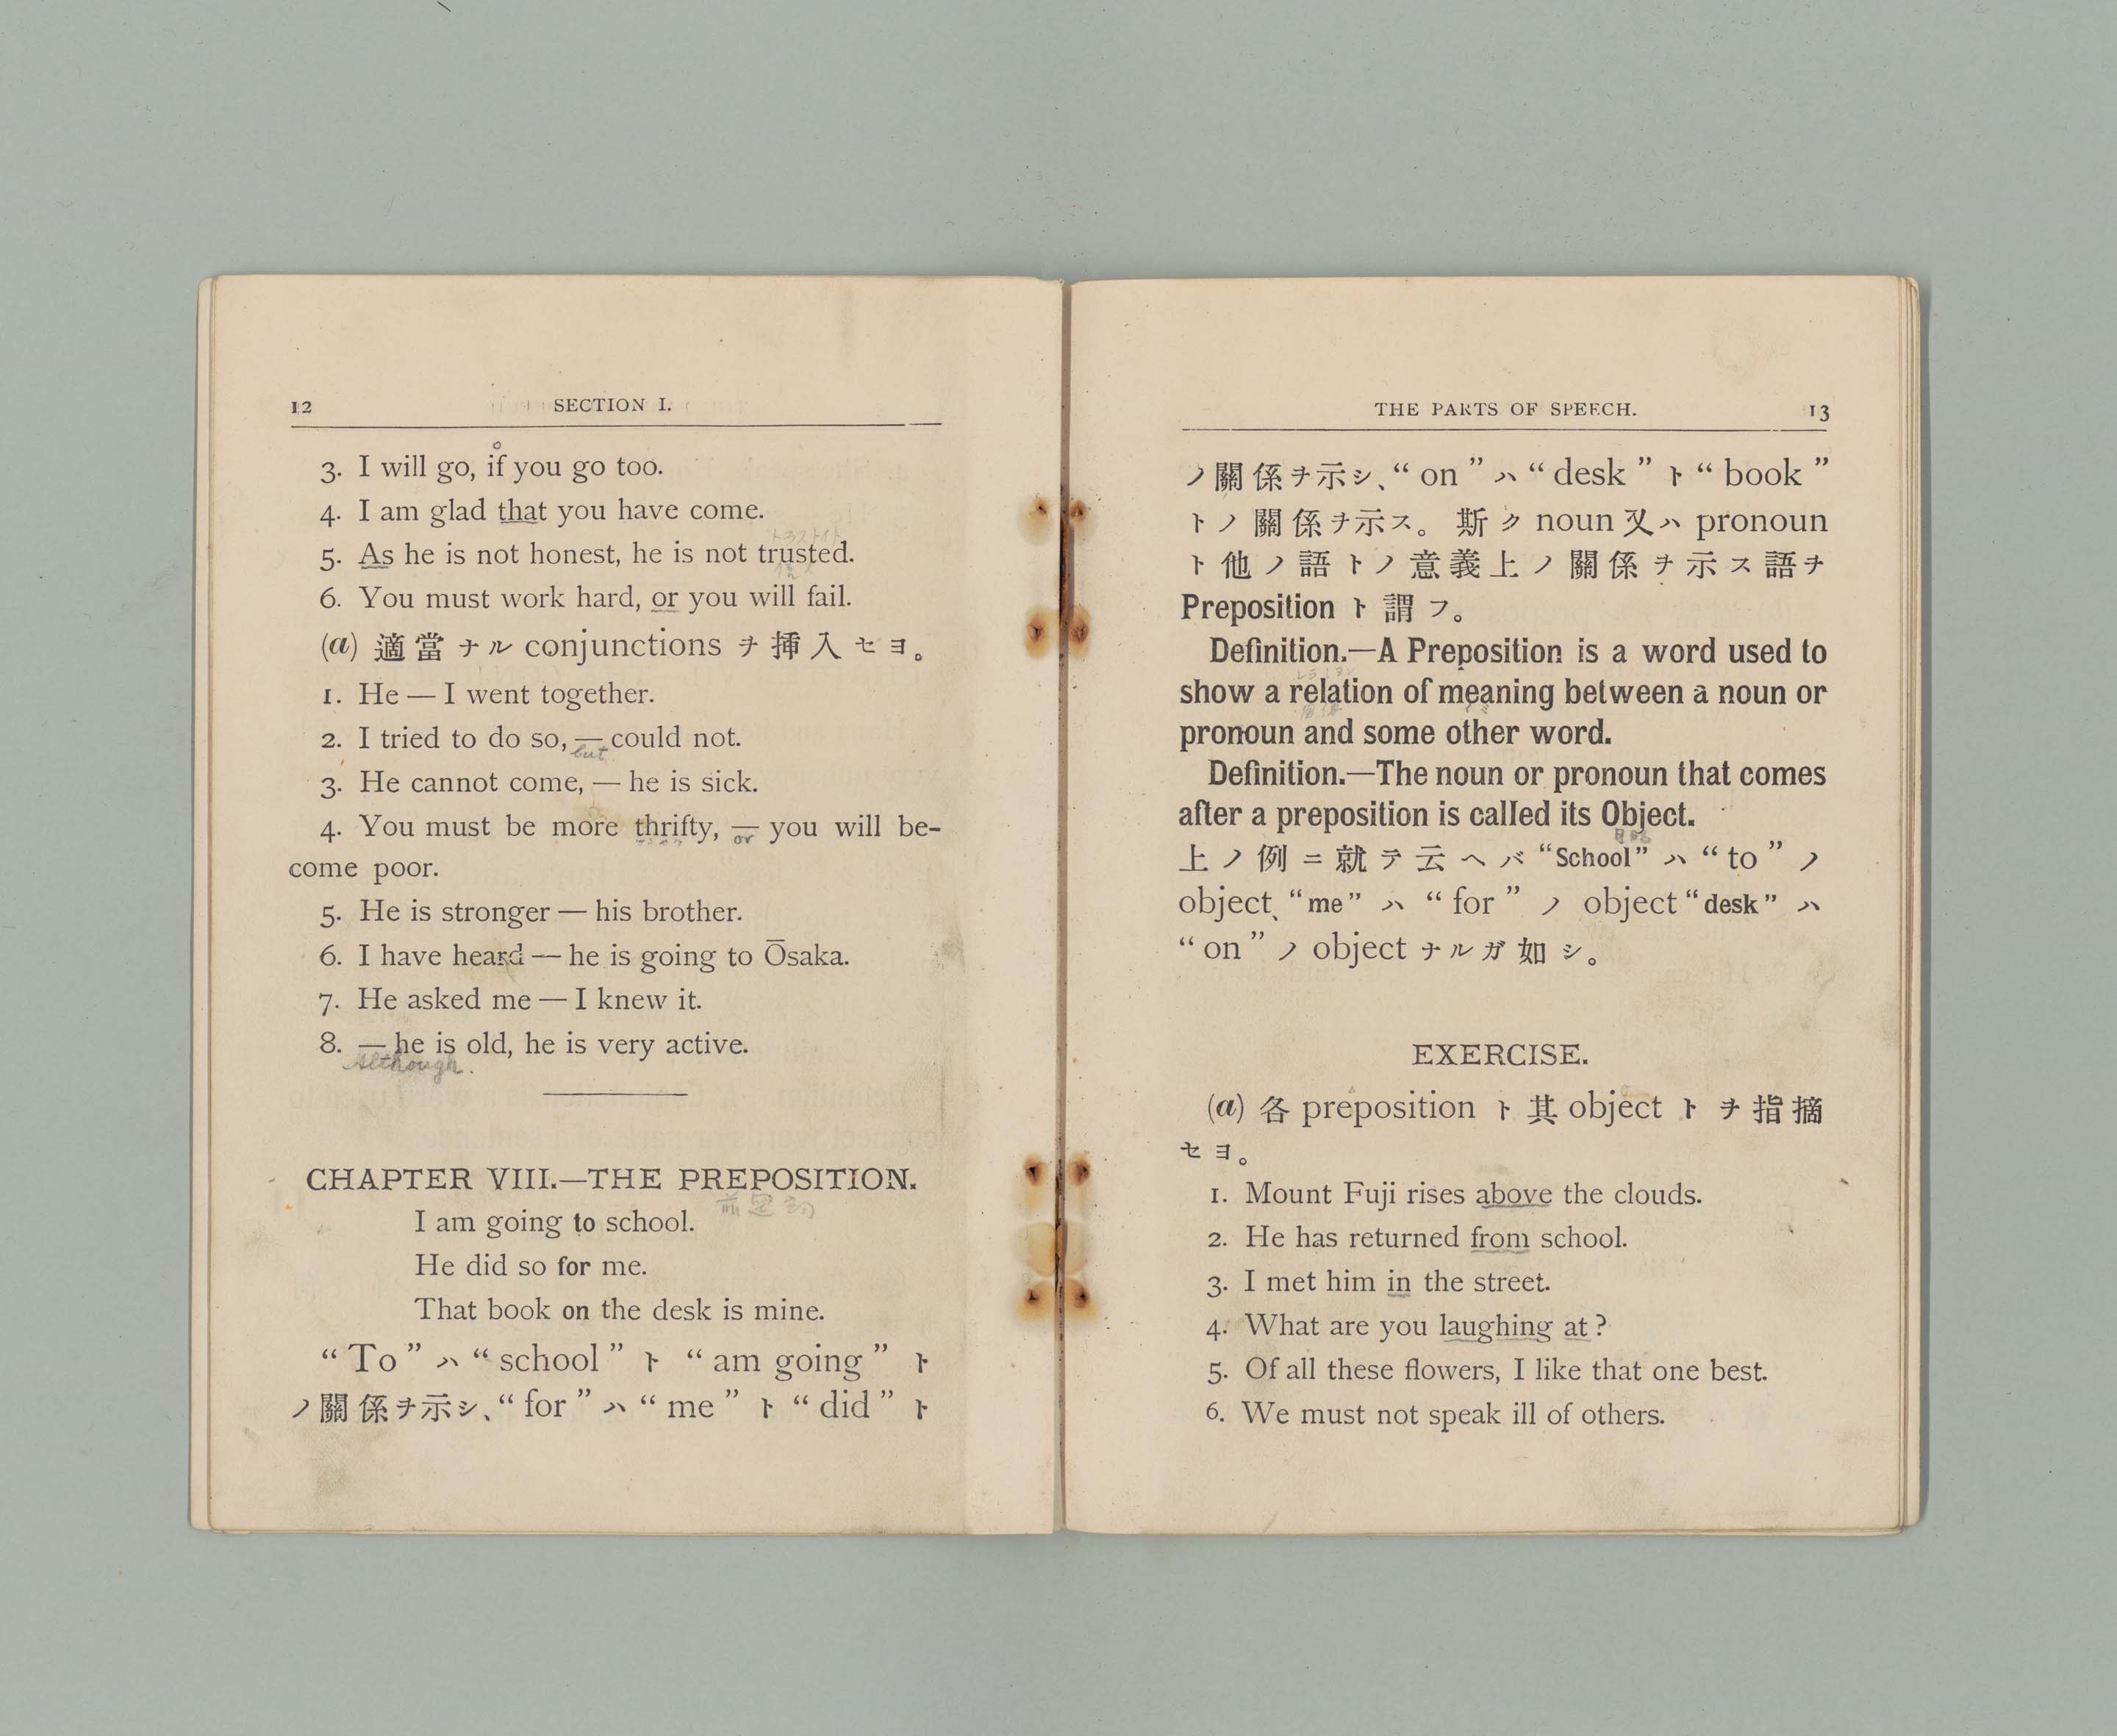 12 SECTION I.
3. I will go, if you go too.
4. I am glad that you have come.
トラストイト
5. As he is not honest, he is not trusted.
6. You must work hard, or you will fail.
(a) 適當ナル conjunctions ヲ挿入セヨ。
1. He — I went together.
2. I tried to do so, — could not.
but
3. He cannot come, — he is sick.
4. You must be more thrifty, — you will be-
or
come poor.
5. He is stronger — his brother.
6. I have heard — he is going to Ōsaka.
7. He asked me — I knew it.
8. — he is old, he is very active.
Although.
CHAPTER VIII.—THE PREPOSITION.
前置詞
I am going to school.
He did so for me.
That book on the desk is mine.
“To” ハ “school” ト “am going” ト
ノ關係ヲ示シ、“for” ハ “me” ト “did” ト
THE PARTS OF SPEECH. 13
ノ關係ヲ示シ、“on” ハ “desk” ト “book”
トノ關係ヲ示ス。斯ク noun 又ハ pronoun
ト他ノ語トノ意義上ノ關係ヲ示ス語ヲ
Preposition ト謂フ。
Definition.—A Preposition is a word used to
show a relation of meaning between a noun or
pronoun and some other word.
Definition.—The noun or pronoun that comes
after a preposition is called its Object.
上ノ例ニ就テ云ヘバ “School” ハ “to” ノ
object、“me” ハ “for” ノ object “desk” ハ
“on” ノ object ナルガ如シ。
EXERCISE.
(a) 各 preposition ト其 object トヲ指摘
セヨ。
1. Mount Fuji rises above the clouds.
2. He has returned from school.
3. I met him in the street.
4. What are you laughing at?
5. Of all these flowers, I like that one best.
6. We must not speak ill of others.